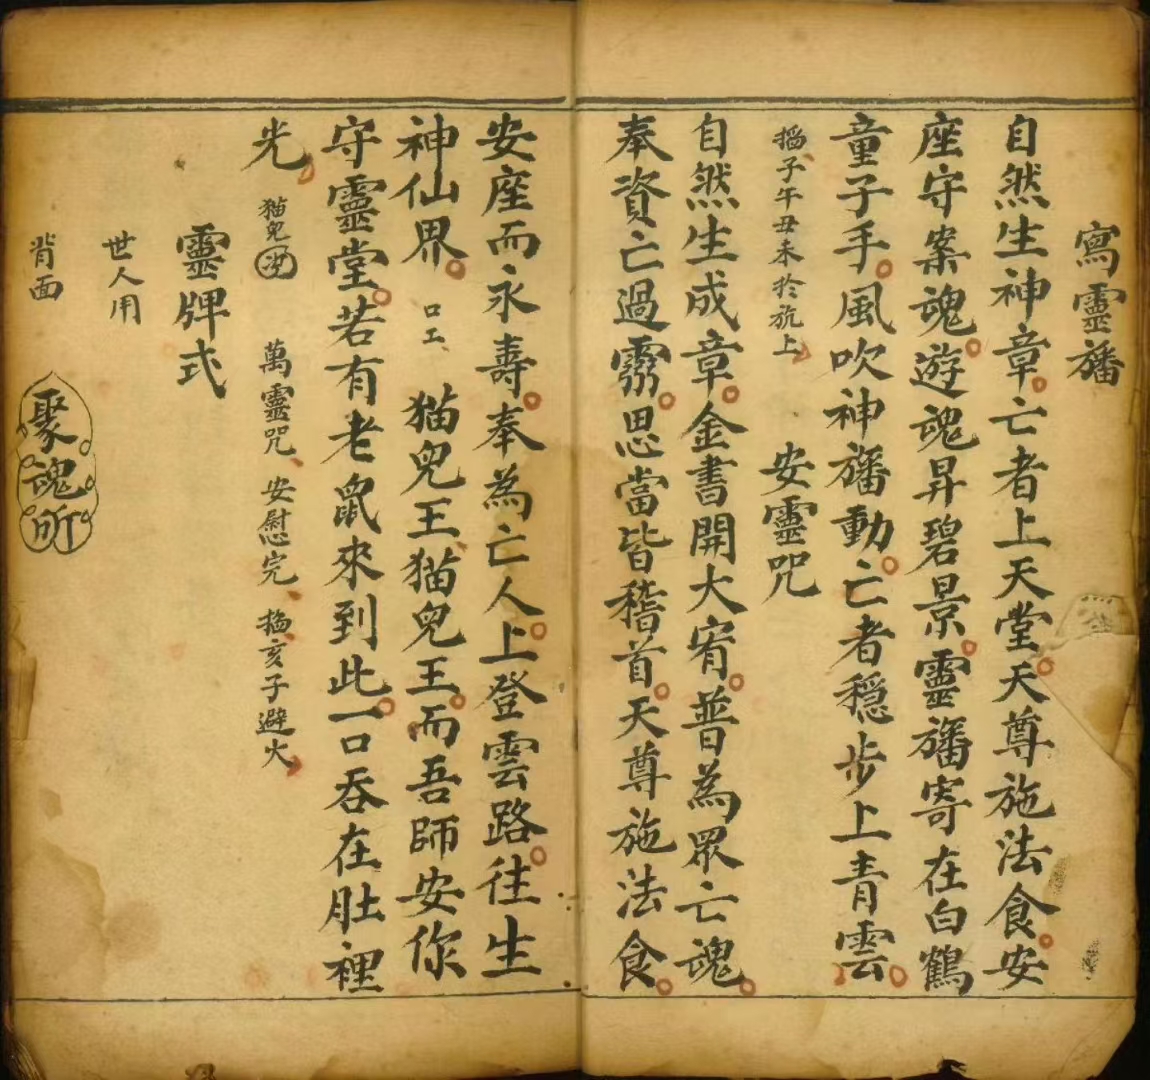 寫靈旛
自然生神章亡者上天堂天尊施法食安
座守案魂遊魂昇碧景靈旛寄在白鶴
童子手風吹神旛動亡者穩步上青雲
搯子午丑未於旂上
安靈咒
自然生成章金書開大宥普為眾亡魂
奉資亡過霛思當皆稽首天尊施法食
安座而永壽奉為亡人上登雲路往生
神仙界 口工 猫皃王猫皃王而吾師安你
守靈堂若有老鼠來到此一口吞在肚裡
光 猫皃 萬靈咒安慰完搯亥子避火
靈牌式
世人用
背面
聚魂所